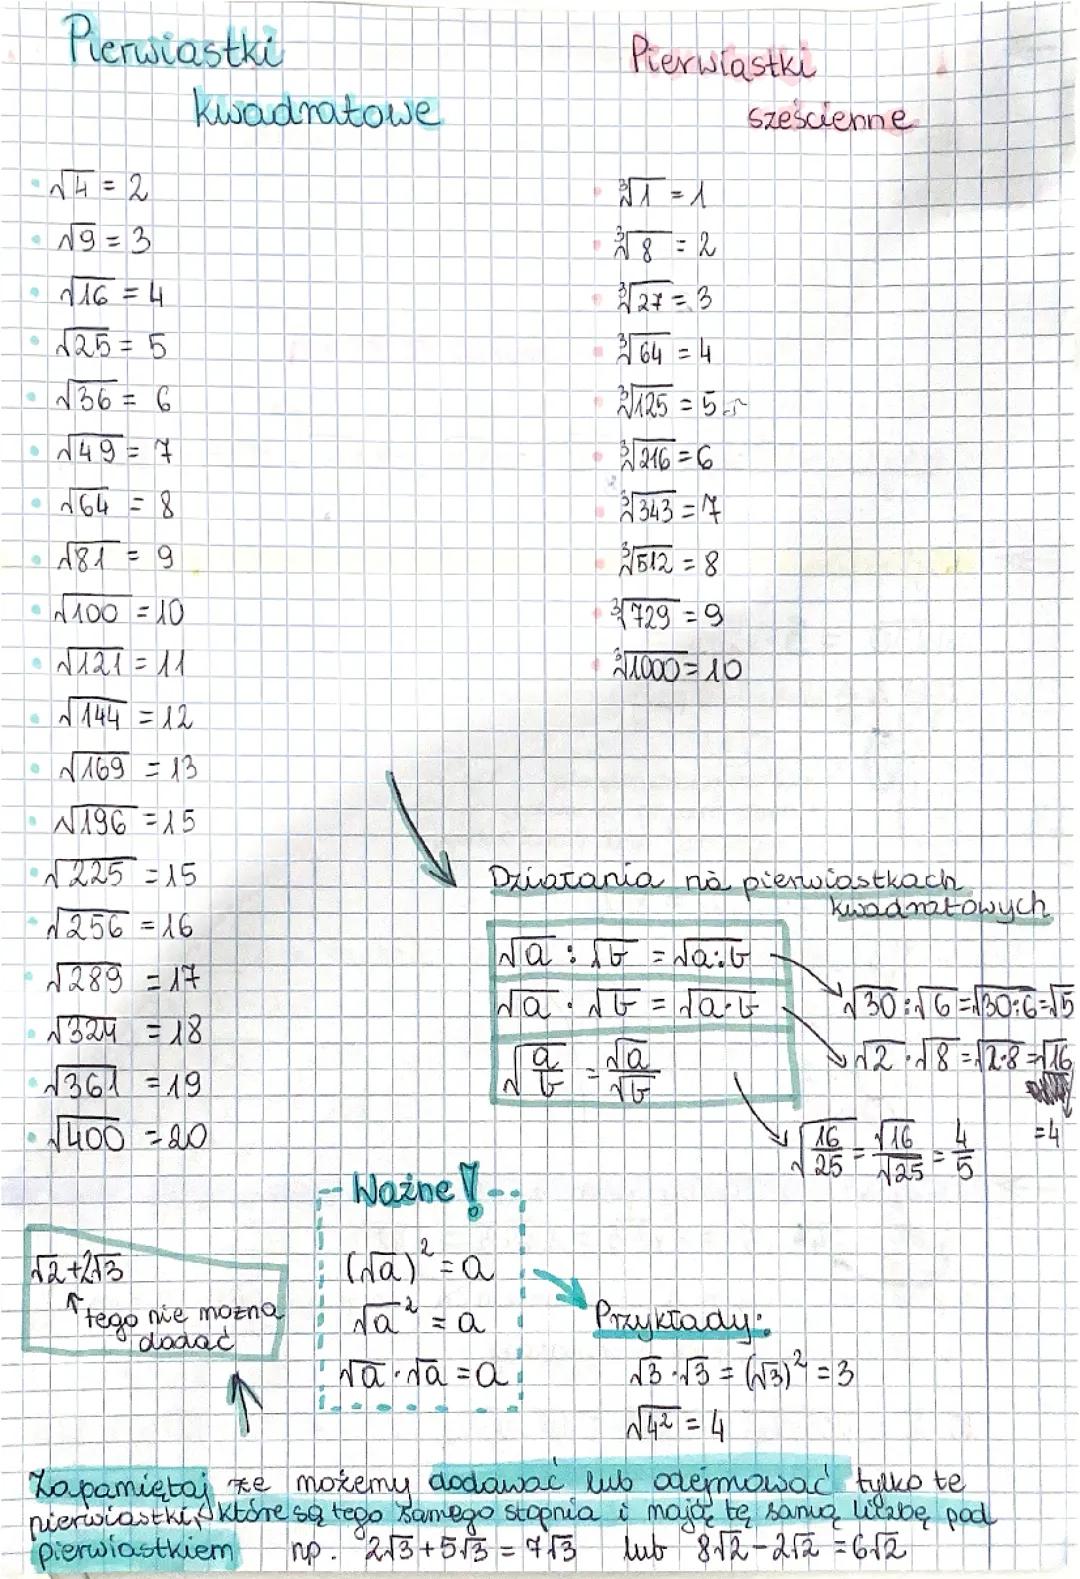 Pierwiastki
kwadratowe
√4 = 2
√9 = 3
√16 = 4
√25 = 5
√36 = 6
√49 = 7
√64 = 8
√81 = 9
√100 = 10
√121 = 11
√144 = 12
√169 = 13
√196 = 15
√225 = 15
√256 = 16
√289 = 17
√324 = 18
√361 = 19
√400 = 20
Pierwiastki
sześcienne
∛1 = 1
∛8 = 2
∛27 = 3
∛64 = 4
∛125 = 5
∛216 = 6
∛343 = 7
∛512 = 8
∛729 = 9
∛1000 = 10
Działania na pierwiastkach
kwadratowych
√a : √b = √a:b
√a · √b = √a·b
√a/b = √a/√b
√30 : √6 = √30:6 = √5
√2 · √8 = √2·8 = √16
= 4
√16/25 = √16/√25 = 4/5
Ważne!
(√a)² = a
√a² = a
√a · √a = a
√2+2√3
tego nie można
dodać
Przykłady:
√3 · √3 = (√3)² = 3
√4² = 4
Zapamiętaj że możemy dodawać lub odejmować tylko te
pierwiastki, które są tego samego stopnia i mają tę samą liczbę pod
pierwiastkiem np. 2√3+5√3 = 7√3 lub 8√2-2√2 = 6√2